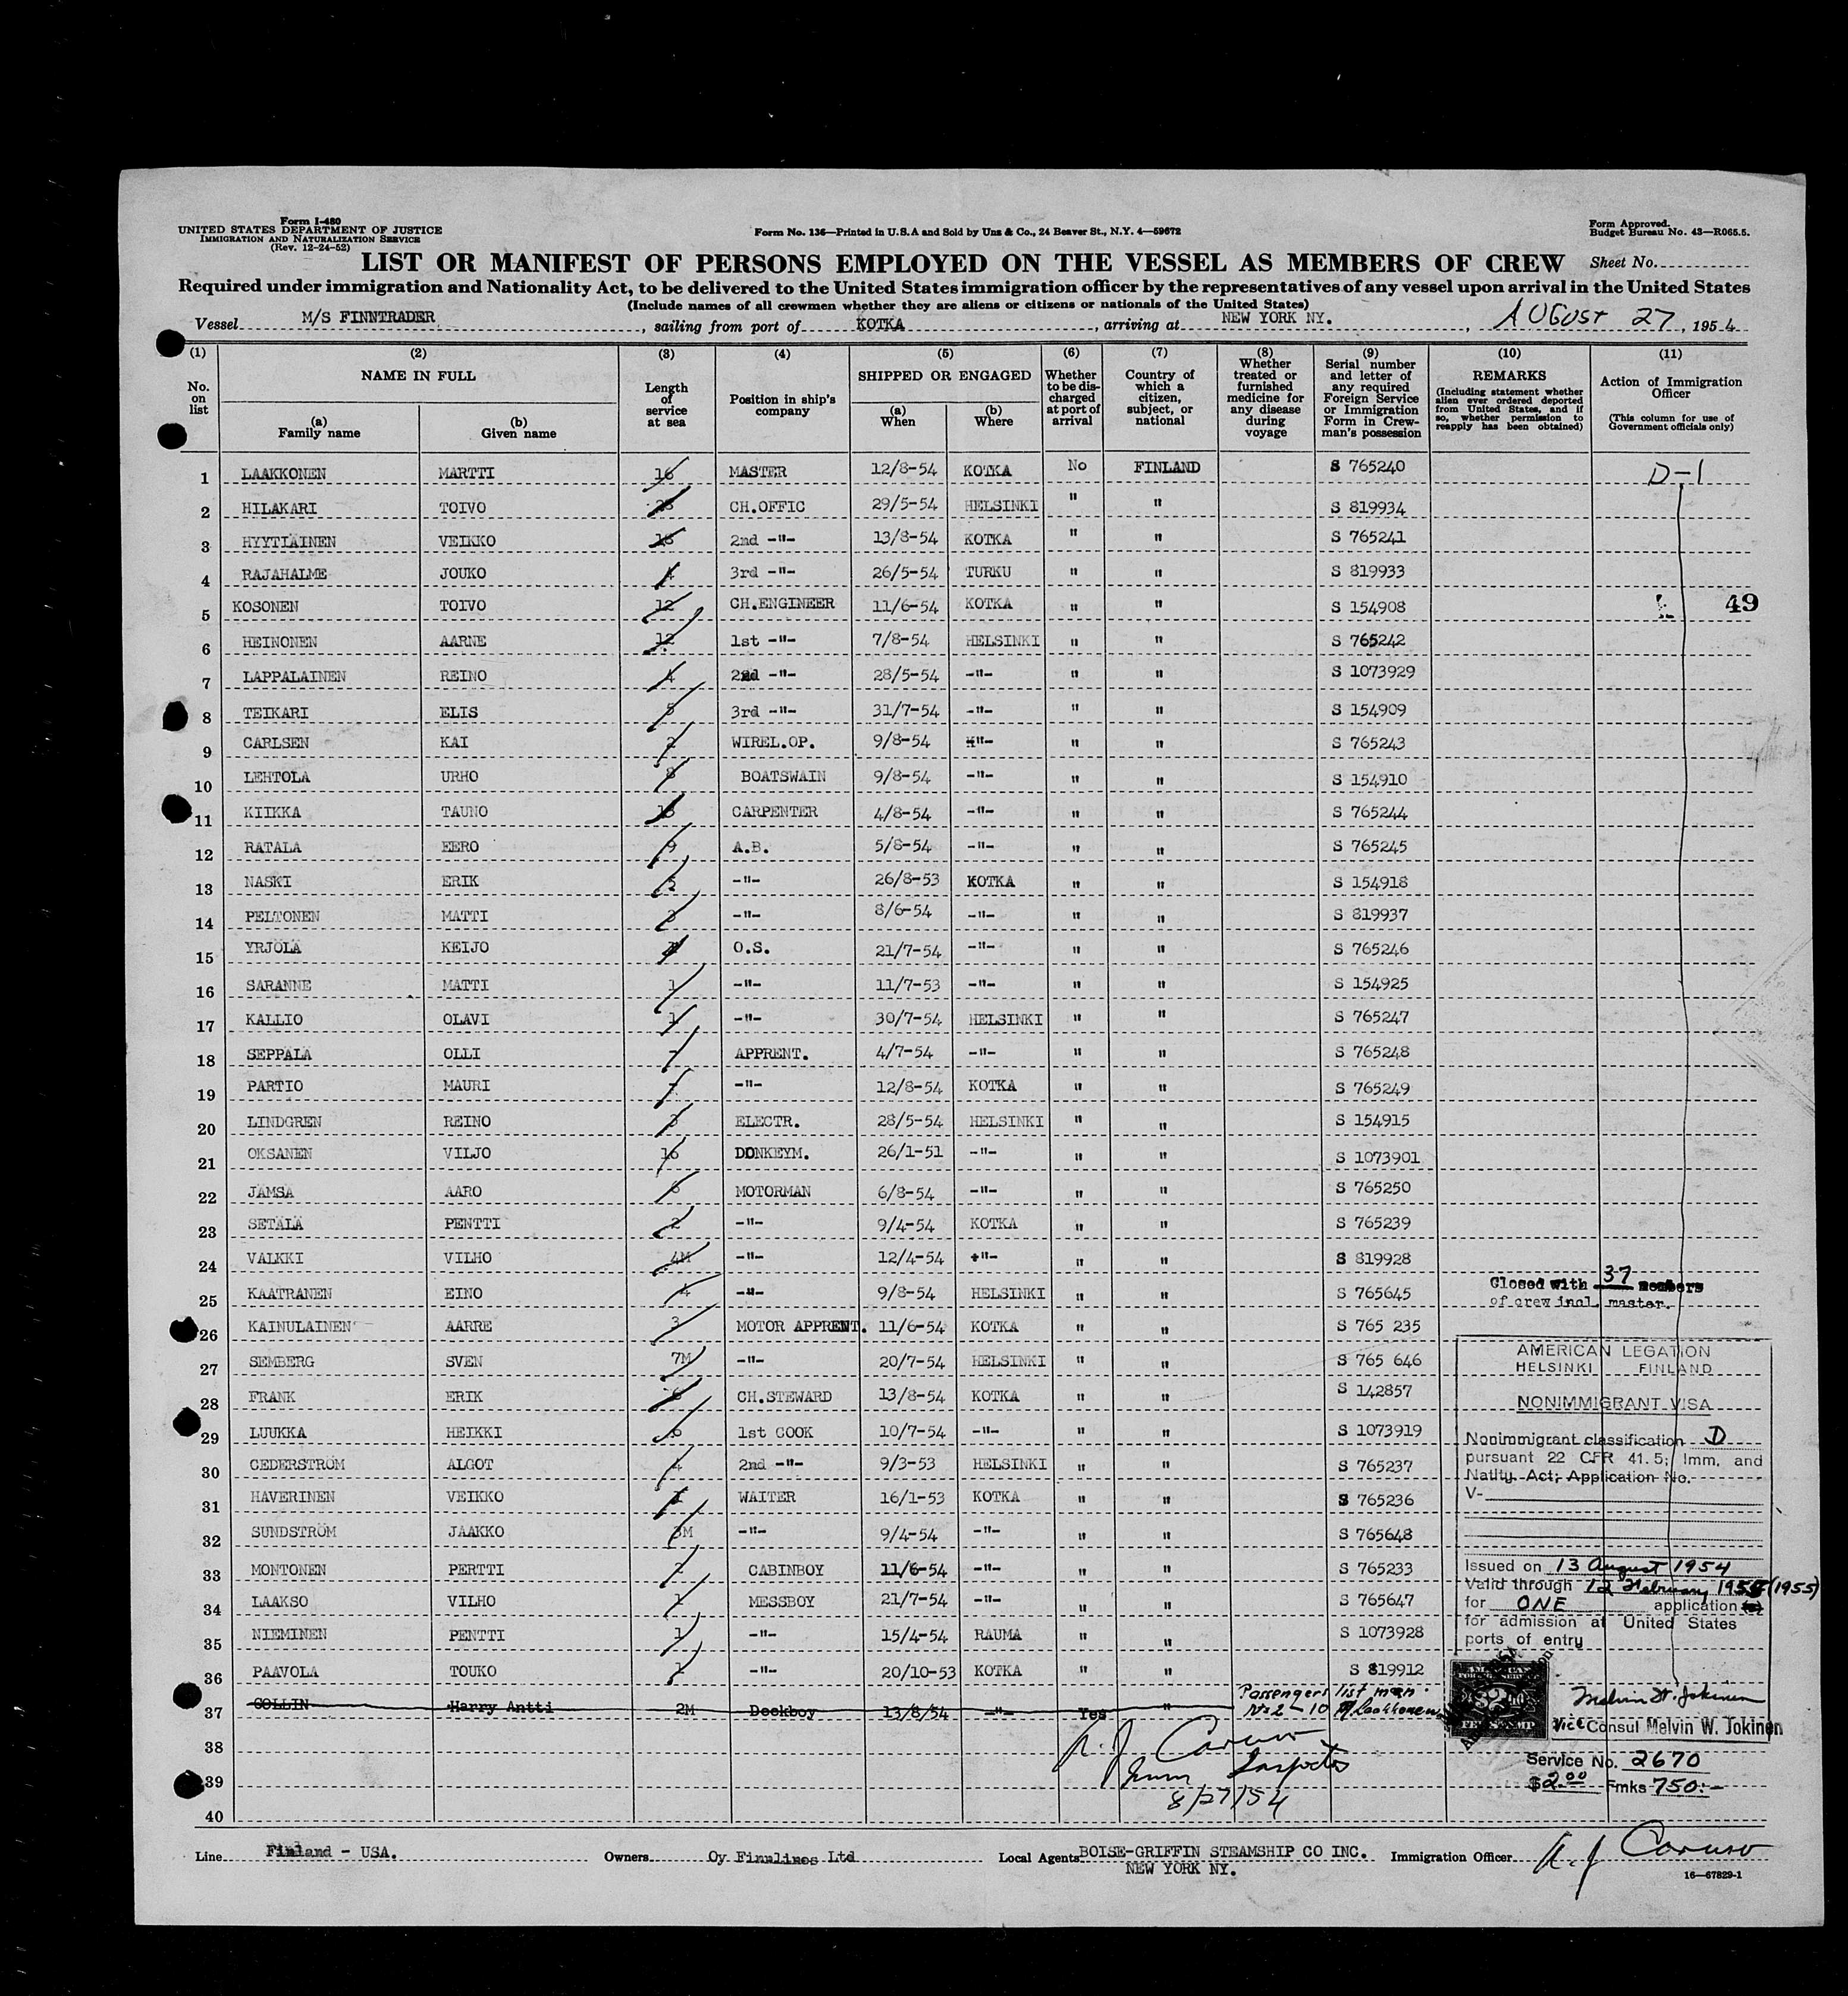 Form I-480
UNITED STATES DEPARTMENT OF JUSTICE
IMMIGRATION AND NATURALIZATION SERVICE
(Rev. 12-24-52)
Form No. 136—Printed in U.S.A and Sold by Unz & Co., 24 Beaver St., N.Y. 4—59672
Form Approved.
Budget Bureau No. 43—R065.5.
LIST OR MANIFEST OF PERSONS EMPLOYED ON THE VESSEL AS MEMBERS OF CREW Sheet No.
Required under immigration and Nationality Act, to be delivered to the United States immigration officer by the representatives of any vessel upon arrival in the United States
(Include names of all crewmen whether they are aliens or citizens or nationals of the United States)
Vessel M/S FINNTRADER, sailing from port of KOTKA, arriving at NEW YORK NY., AUGUST 27, 1954
(1) No. on list
(2) NAME IN FULL
(a) Family name
(b) Given name
(3) Length of service at sea
(4) Position in ship's company
(5) SHIPPED OR ENGAGED
(a) When
(b) Where
(6) Whether to be discharged at port of arrival
(7) Country of which a citizen, subject, or national
(8) Whether treated or furnished medicine for any disease during voyage
(9) Serial number and letter of any required Foreign Service or Immigration Form in Crewman's possession
(10) REMARKS
(Including statement whether alien ever ordered deported from United States, and if so, whether permission to reapply has been obtained)
(11) Action of Immigration Officer
(This column for use of Government officials only)
1 LAAKKONEN MARTTI 16 MASTER 12/8-54 KOTKA No FINLAND S 765240 D-1
2 HILAKARI TOIVO CH.OFFIC 29/5-54 HELSINKI " " S 819934
3 HYYTIÄINEN VEIKKO CH 2nd -"- 13/8-54 KOTKA " " S 765241
4 RAJAHALME JOUKO 4 3rd -"- 26/5-54 TURKU " " S 819933
5 KOSONEN TOIVO 12 CH.ENGINEER 11/6-54 KOTKA " " S 154908 49
6 HEINONEN AARNE 12 1st -"- 7/8-54 HELSINKI " " S 765242
7 LAPPALAINEN REINO 4 2nd -"- 28/5-54 -"- " " S 1073929
8 TEIKARI ELIS 5 3rd -"- 31/7-54 -"- " " S 154909
9 CARLSEN KAI 2 WIREL.OP. 9/8-54 -"- " " S 765243
10 LEHTOLA URHO 8 BOATSWAIN 9/8-54 -"- " " S 154910
11 KIIKKA TAUNO CARPENTER 4/8-54 -"- " " S 765244
12 RATALA EERO 9 A.B. 5/8-54 -"- " " S 765245
13 NASKI ERIK -"- 26/8-53 KOTKA " " S 154918
14 PELTONEN MATTI 3 -"- 8/6-54 -"- " " S 819937
15 YRJÖLÄ KEIJO O.S. 21/7-54 -"- " " S 765246
16 SARANNE MATTI 1 -"- 11/7-53 -"- " " S 154925
17 KALLIO OLAVI 1 -"- 30/7-54 HELSINKI " " S 765247
18 SEPPÄLÄ OLLI - APPRENT. 4/7-54 -"- " " S 765248
19 PARTIO MAURI - -"- 12/8-54 KOTKA " " S 765249
20 LINDGREN REINO 3 ELECTR. 28/5-54 HELSINKI " " S 154915
21 OKSANEN VILJO 16 DONKEYM. 26/1-51 -"- " " S 1073901
22 JÄMSÄ AARO MOTORMAN 6/8-54 -"- " " S 765250
23 SETÄLÄ PENTTI 2 -"- 9/4-54 KOTKA " " S 765239
24 VALKKI VILHO 4M -"- 12/4-54 -"- " " S 819928
25 KAATRANEN EINO 4 -"- 9/8-54 HELSINKI " " S 765645
26 KAINULAINEN AARRE 3 MOTOR APPRENT. 11/6-54 KOTKA " " S 765 235
27 SEMBERG SVEN 7M -"- 20/7-54 HELSINKI " " S 765 646
28 FRANK ERIK CH.STEWARD 13/8-54 KOTKA " " S 142857
29 LUUKKA HEIKKI 6 1st COOK 10/7-54 -"- " " S 1073919
30 CEDERSTRÖM ALGOT 4 2nd -"- 9/3-53 HELSINKI " " S 765237
31 HAVERINEN VEIKKO 1 WAITER 16/1-53 KOTKA " " S 765236
32 SUNDSTRÖM JAAKKO -"- 9/4-54 -"- " " S 765648
33 MONTONEN PERTTI 2 CABINBOY 11/6-54 -"- " " S 765233
34 LAAKSO VILHO 1 MESSBOY 21/7-54 -"- " " S 765647
35 NIEMINEN PENTTI 1 -"- 15/4-54 RAUMA " " S 1073928
36 PAAVOLA TOUKO 1 -"- 20/10-53 KOTKA " " S 819912
37 COLLIN Harry Antti 2M Deckboy 13/8/54 -"- Yes "
Passengers list man.
No 2 - 10 Laakkonen
38
39
40
A. J. Caruso
Imm Inspector
8/27/54
Closed with 37 members
of crew incl. master.
AMERICAN LEGATION
HELSINKI FINLAND
NONIMMIGRANT VISA
Nonimmigrant classification D
pursuant 22 CFR 41.5; Imm. and
Natlty. Act; Application No.
V-
Issued on 13 August 1954
Valid through 12 February 1955 (1955)
for ONE application
for admission at United States
ports of entry
Melvin W. Jokinen
Vice Consul Melvin W. Jokinen
Service No. 2670
$2.00 Fmks 750:-
Line Finland - USA. Owners Oy Finnlines Ltd Local Agents BOISE-GRIFFIN STEAMSHIP CO INC. Immigration Officer A. J. Caruso
NEW YORK NY.
16—67829-1